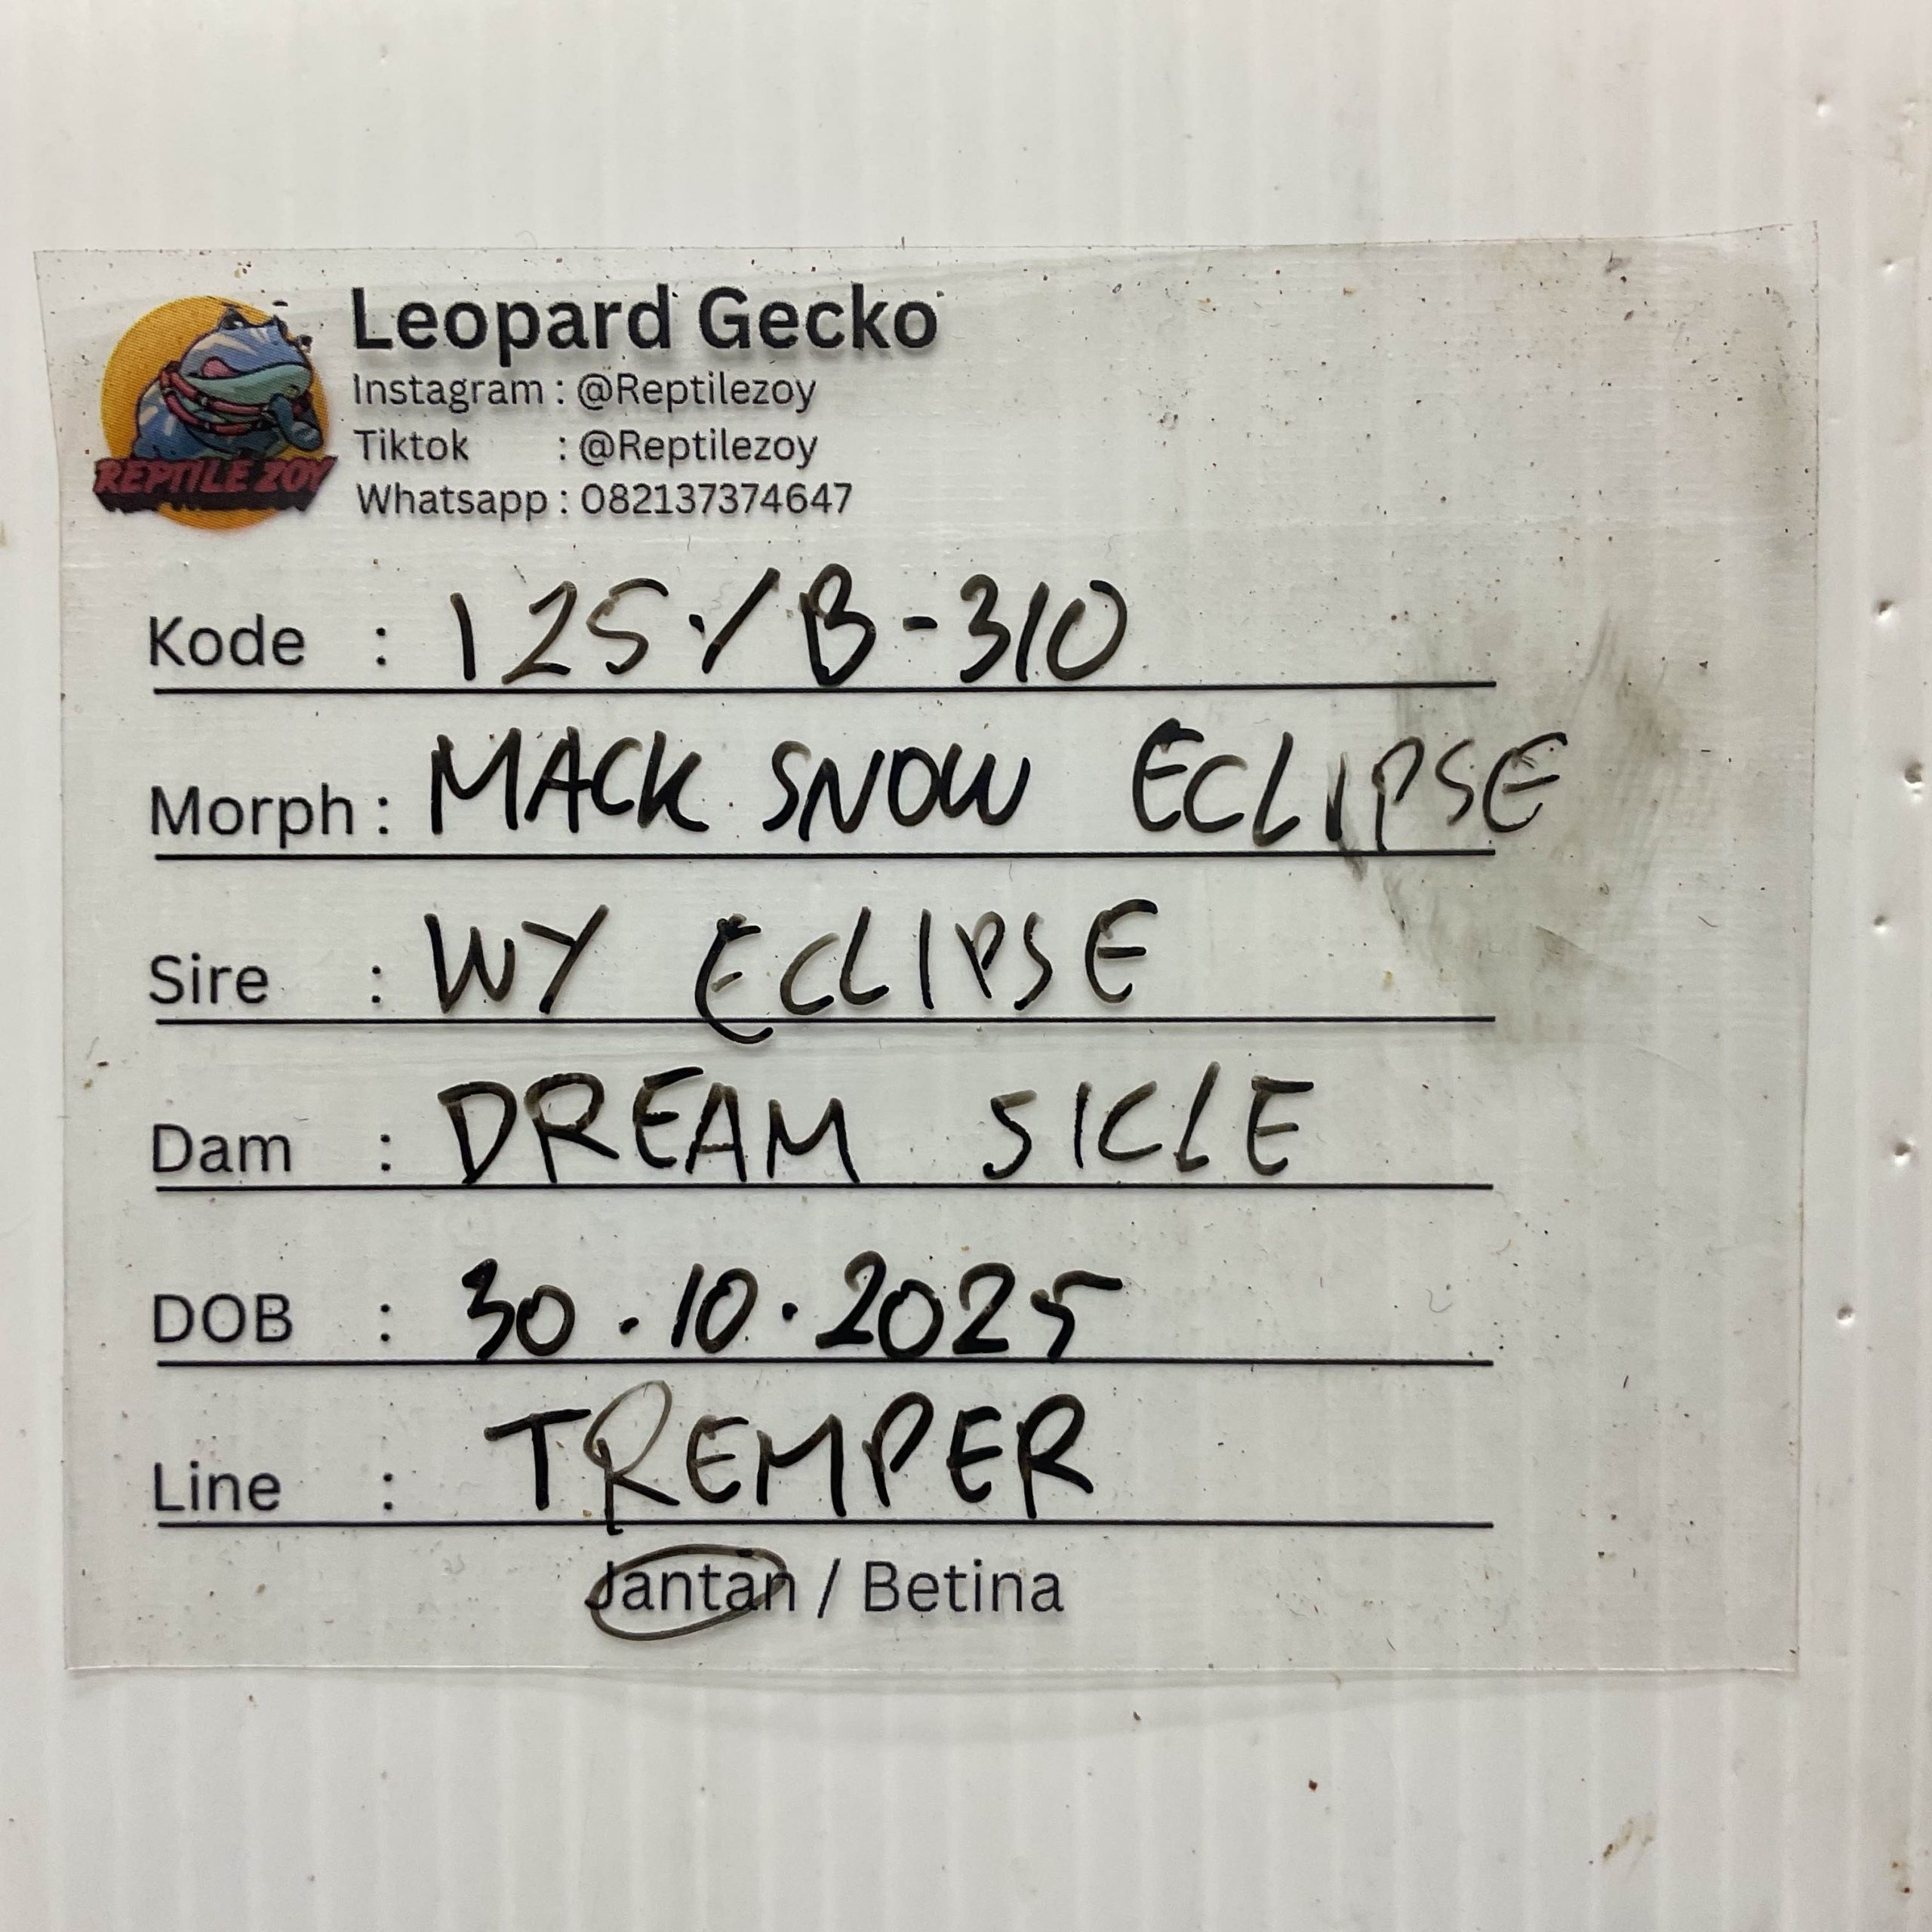 Leopard Gecko
Instagram : @Reptilezoy
Tiktok : @Reptilezoy
Whatsapp : 082137374647
REPTILE ZOY
Kode : 125./B-310
Morph : MACK SNOW ECLIPSE
Sire : WY ECLIPSE
Dam : DREAM SICLE
DOB : 30.10.2025
Line : TREMPER
Jantan / Betina